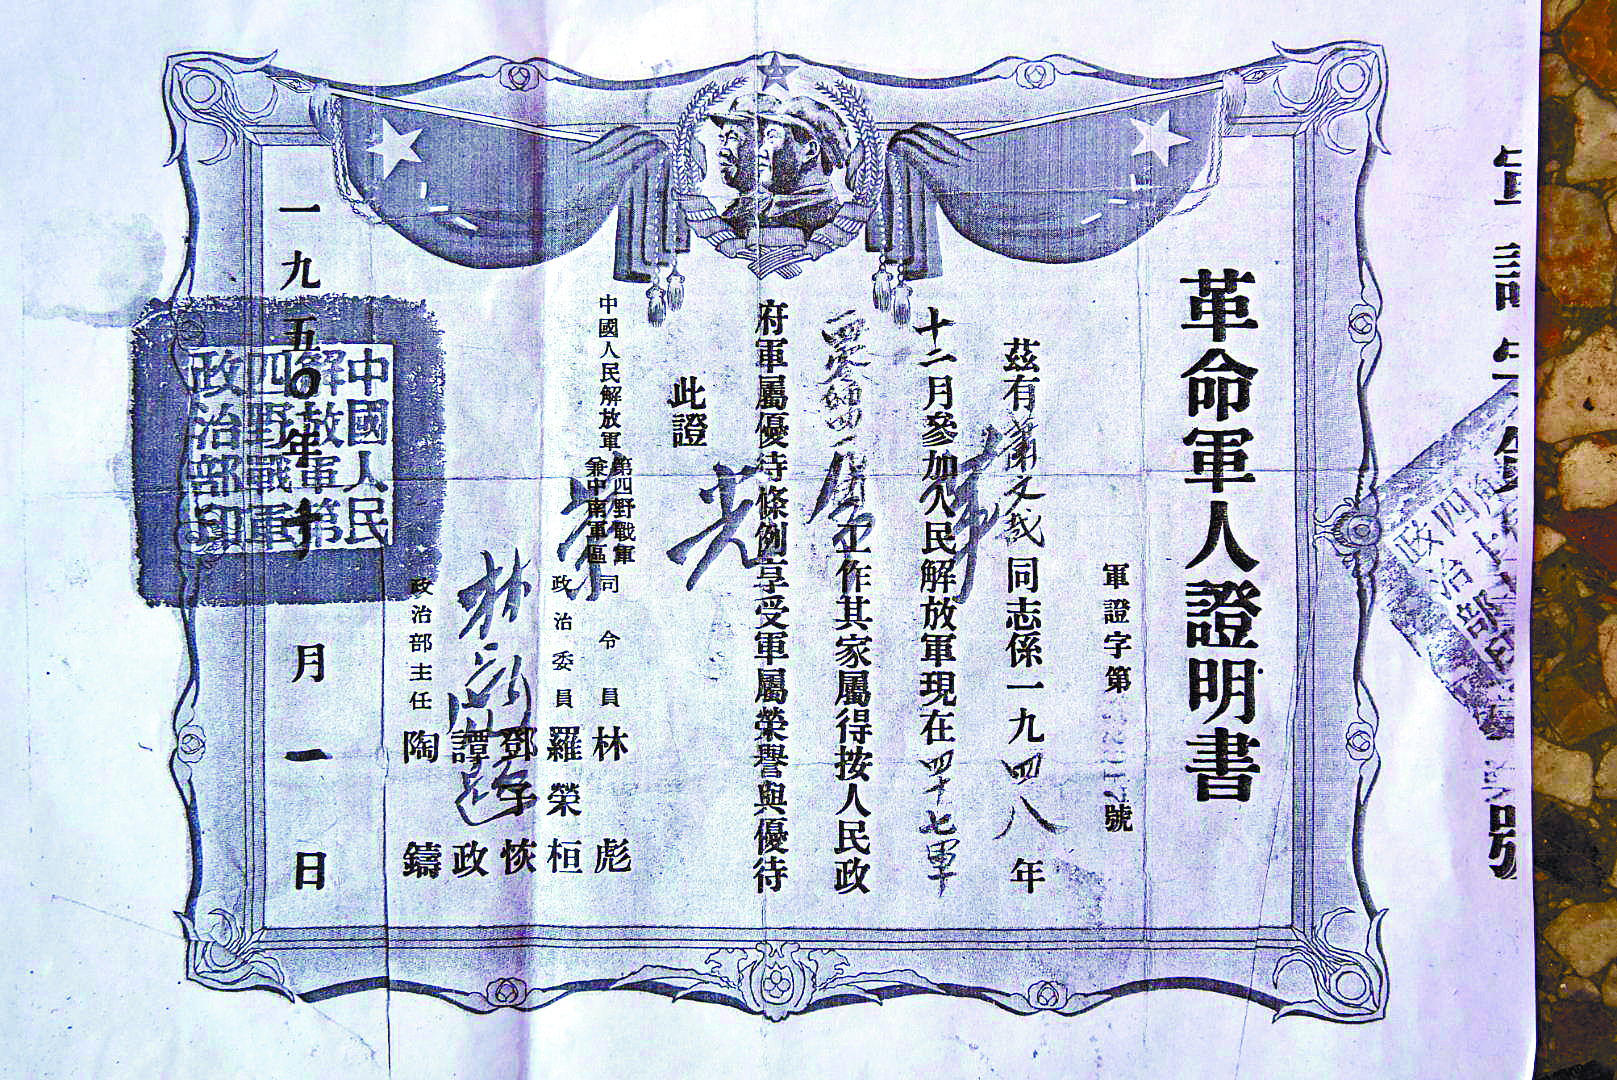 革命軍人證明書
軍證字第
號
茲有蕭文成同志係一九四八年
十二月參加人民解放軍現在四十七軍
工作其家屬得按人民政
府軍屬優待條例享受軍屬榮譽與優待
此證
軍屬光榮
中國人民解放軍
第四野戰軍
兼中南軍區
司令員林彪
政治委員羅榮桓
鄧子恢
譚政
政治部主任陶鑄
一九五〇年十一月一日
中國人民
解放軍第
四野戰軍
政治部印
號
四
政治部